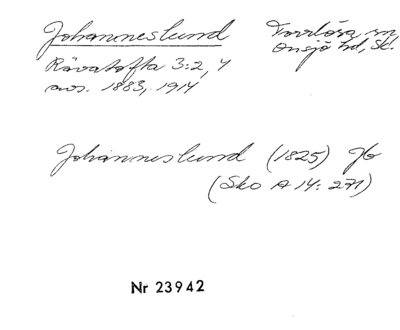 Johanneslund
Torrlösa sn,
Onsjö hd, Sk.
Rävatofta 3:2, 4
avs. 1883, 1914
Johanneslund (1825) gb
(Sko A 14: 271)
Nr 23942